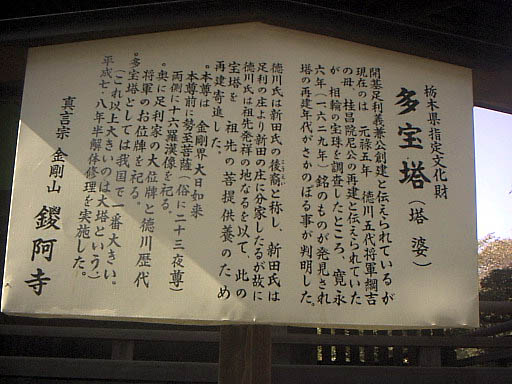 栃木県指定文化財
多宝塔（塔婆）
開基足利義兼公創建と伝えられているが
現在のは 元禄五年 徳川五代将軍綱吉
の母、桂昌院尼公の再建と伝えられていた
が相輪の宝珠を調査したところ、寛永
六年（一六二九年）銘のものが発見され
塔の再建年代がさかのぼる事が判明した。
徳川氏は新田氏の後裔と称し、新田氏は
足利の庄より新田の庄に分家したるが故に
徳川氏は祖先発祥の地なるを以て、此の
宝塔を 祖先の菩提供養のため
再建寄進した。
。本尊は 金剛界大日如来
本尊前に勢至菩薩（俗に二十三夜尊）
両側に十六羅漢像を祀る。
。奥に足利家の大位牌と徳川歴代
将軍のお位牌を祀る。
。多宝塔としては我国で一番大きい。
（これ以上大きいのは大塔という）
平成七・八年半解体修理を実施した。
真言宗 金剛山 鑁阿寺